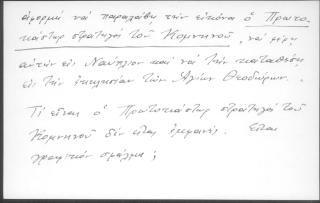 ἀφορμὴ νὰ παραλάβῃ τὴν εἰκόνα ὁ Πρωτο-
κάστωρ στρατηλοὶ τοῦ Κομνηνοῦ, νὰ φέρῃ
αὐτὴν εἰς Ναύπλιον καὶ νὰ τὴν καταθέσῃ
εἰς τὴν ἐκκλησίαν τῶν Ἁγίων Θεοδώρων.
Τί εἶναι ὁ Πρωτοκάστωρ στρατηλοὶ τοῦ
Κομνηνοῦ δὲν εἶναι ἐμφανές. Εἶναι
γραφικὸν σφάλμα;